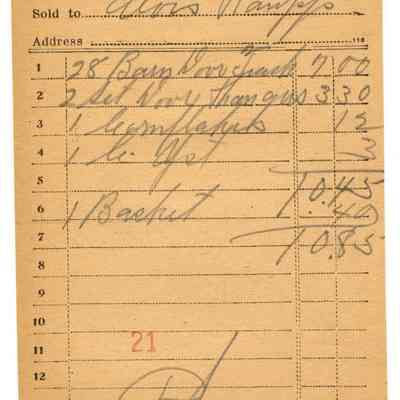 Sold to Alois Raupp
Address 118
1 28 Barn Door Track 7 00
2 2 Set Door Hangers 3 30
3 1 Cornflakes 12
4 1 C. Yst 3
5 10.45
6 1 Basket 40
7 10.85
8
9
10
11 21
12